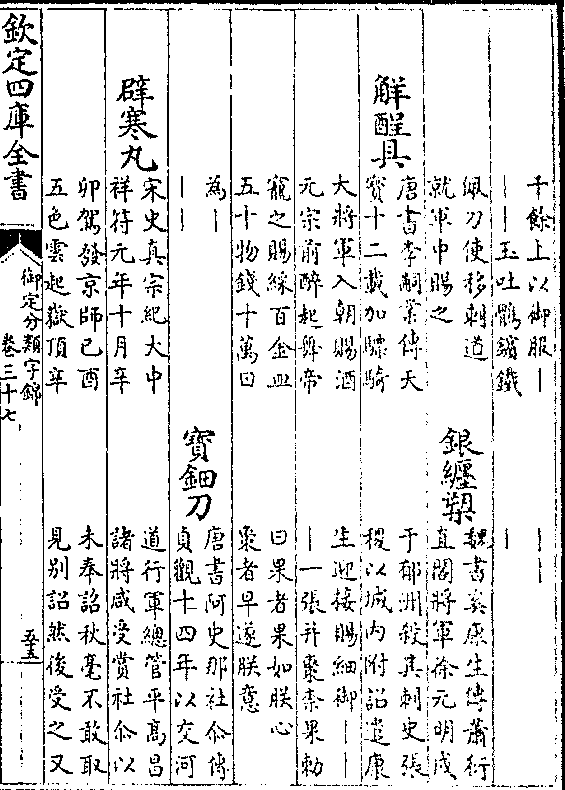 千餘上以御服｜
｜｜玉吐鶻鑌鐵
佩刀使移剌道
就軍中賜之
觧酲具
唐書李嗣業傳天
寳十二載加驃騎
大將軍入朝賜酒
元宗前醉起舞帝
寵之賜綵百金皿
五十物錢十萬曰
為｜
｜｜
辟寒丸
宋史真宗紀大中
祥符元年十月辛
卯駕發京師己酉
五色雲起嶽頂辛
｜｜｜
｜
銀纏槊
魏書奚康生傳蕭衍
直閤將軍徐元明戍
于郁洲殺其刺史張
稷以城内附詔遣康
生迎接賜細御｜｜
｜一張并棗柰果勅
曰果者果如朕心
棗者早遂朕意
寶鈿刀
唐書阿史那社尒傳
貞觀十四年以交河
道行軍總管平髙昌
諸將咸受賞社尒以
未奉詔秋毫不敢取
見别詔然後受之又
欽定四庫全書
御定分類字錦
卷三十七
五五